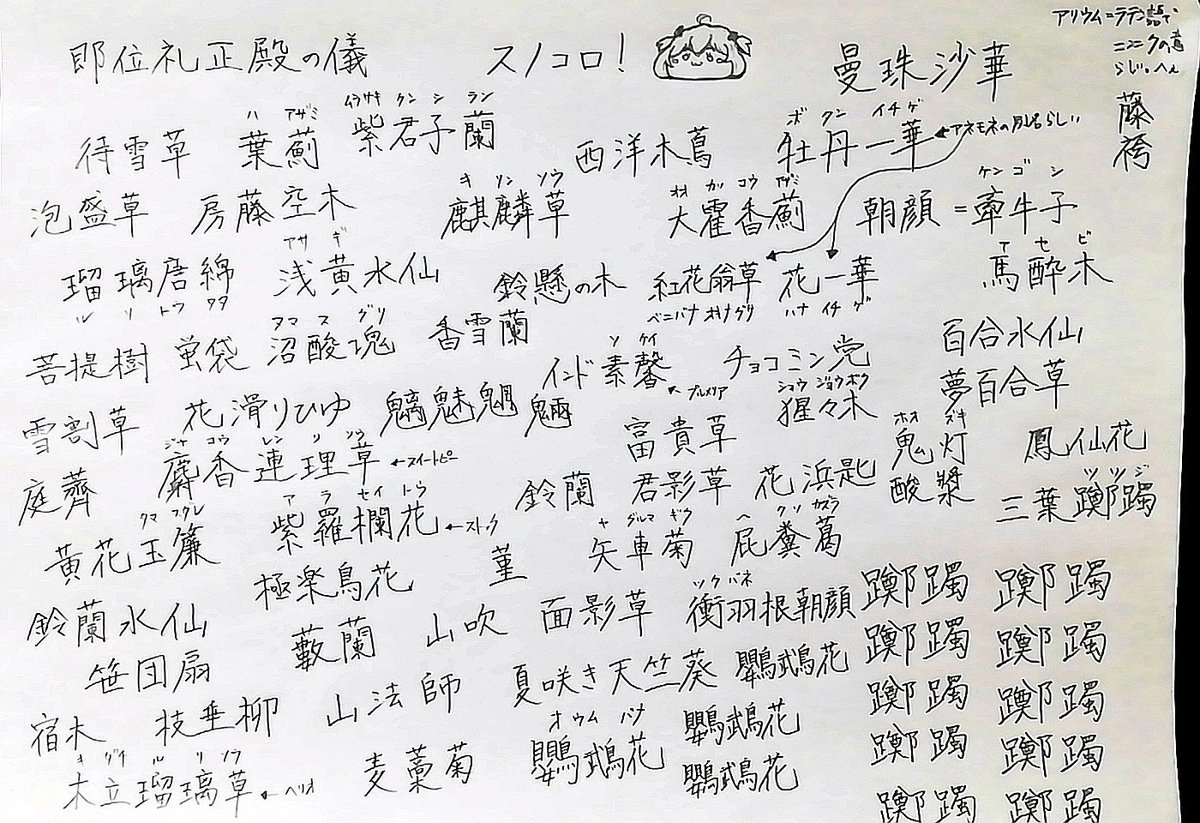 即位礼正殿の儀 スノコロ! 曼珠沙華
アリウム=ラテン語で
ニンニクの意
らしい。へぇ
藤袴
ハ アザミ ムラサキ クン シ ラン ボ タン イチ ゲ
待雪草 葉薊 紫君子蘭 西洋木蔦 牡丹一華 ←アネモネの別名らしい
キ リン ソウ オオ カッ コウ アザミ ケン ゴ シ
泡盛草 房藤空木 麒麟草 大霍香薊 朝顔=牽牛子
アサ ギ ア セ ビ
瑠璃唐綿 浅黄水仙 鈴懸の木 紅花翁草 花一華 馬酔木
ル リ トウ ワタ ベニバナ オキナグサ ハナ イチ ゲ
ヌマ ス グリ
菩提樹 蛍袋 沼酸塊 香雪蘭 百合水仙
ソ ケイ
インド素馨 ←プルメリア チョコミン党 夢百合草
ショウ ジョウ ボク
雪割草 花滑りひゆ 魑魅魍魎 富貴草 猩々木
ジャ コウ レン リ ソウ ホオ ズキ
庭薺 麝香連理草 ←スイートピー 鈴蘭 君影草 花浜匙 鬼灯 鳳仙花
酸漿
クマ スダレ ア ラ セイ トウ ツツジ
黄花玉簾 紫羅欄花 ←ストック 三葉躑躅
ヤ グルマ ギク ヘ クソ カズラ
極楽鳥花 菫 矢車菊 屁糞葛
ツク バネ
鈴蘭水仙 藪蘭 山吹 面影草 衝羽根朝顔 躑躅 躑躅
笹団扇 夏咲き天竺葵 鸚鵡花 躑躅 躑躅
宿木 枝垂柳 山法師 鸚鵡花 躑躅 躑躅
キ ダイ ル リ ソウ オウム バナ
木立瑠璃草 ←ヘリオ 麦藁菊 鸚鵡花 鸚鵡花 躑躅 躑躅
躑躅 躑躅